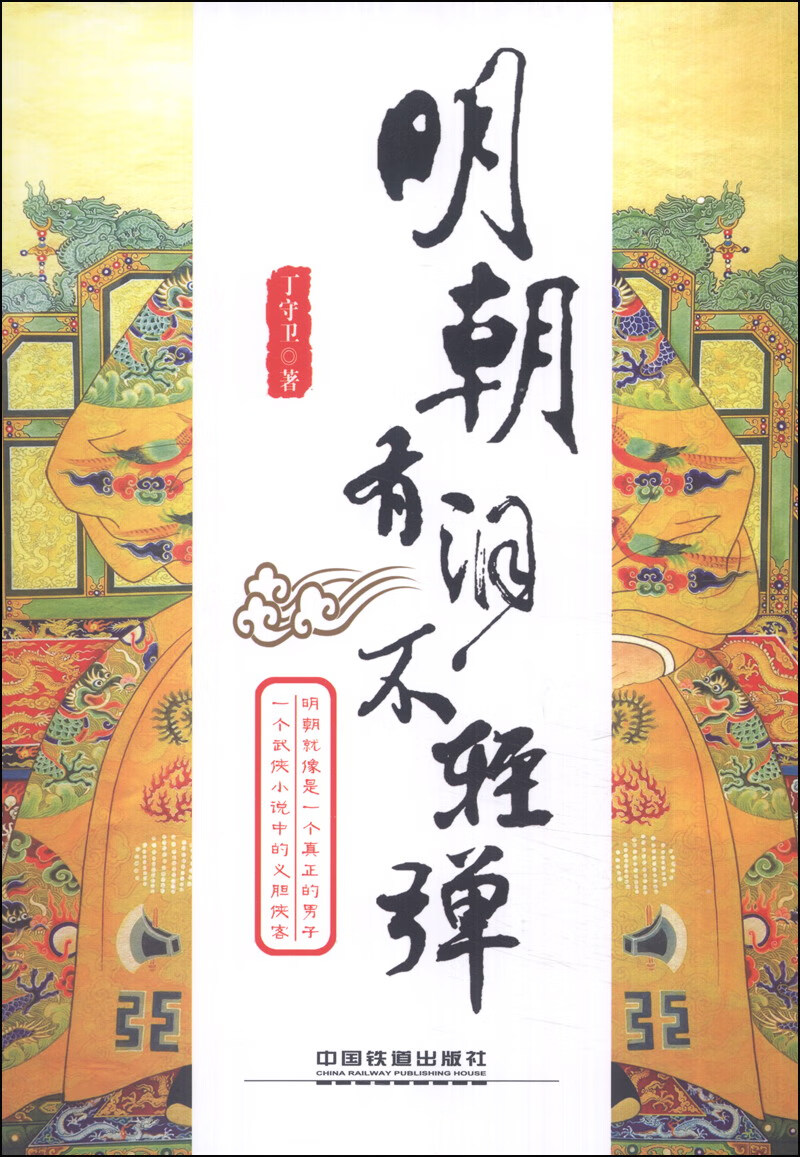 明朝有泪不轻弹
丁守卫◎著
明朝就像是一个真正的男子
一个武侠小说中的义胆侠客
中国铁道出版社
CHINA RAILWAY PUBLISHING HOUSE